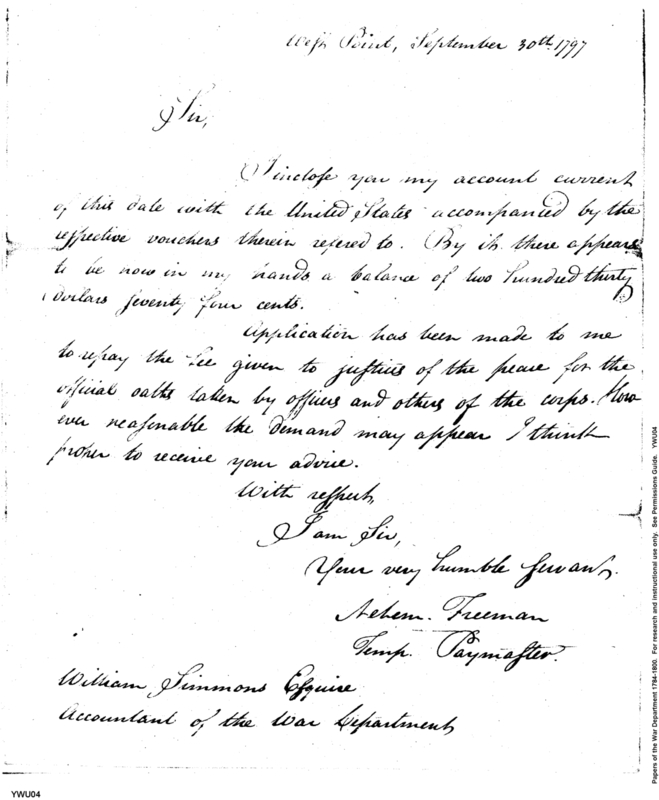 West Point, September 30th. 1797
Sir,
I inclose you my account current
of this date with the United States accompanced by the
respective vouchers therein refered to. By it there appears
to be now in my hands a balance of two hundred thirty
dollars seventy four cents.
Application has been made to me
to repay the Fee given to justices of the peace for the
official oaths taken by officers and others of the corps. How
ever reasonable the demand may appear I think
proper to receive your advice.
With respect,
I am Sir,
Your very humble servant.
Nehem. Freeman
Temp. Paymaster.
William Simmons Esquire
Accountant of the War Department
YWU04
Papers of the War Department 1784-1800. For research and instructional use only. See Permissions Guide. YWU04